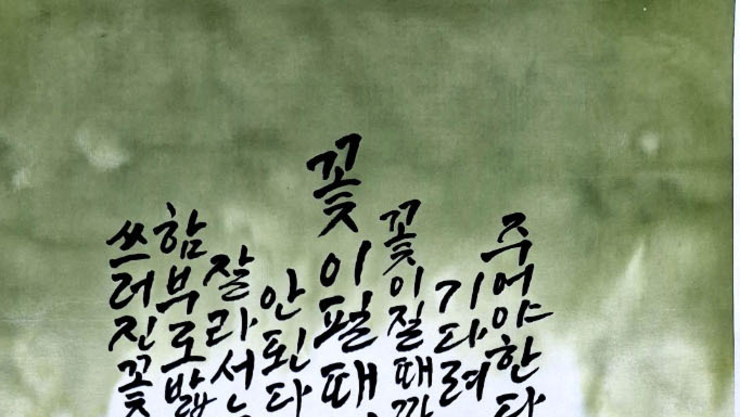 쓰러진꽃
함부로밟
잘라서는
안된다
꽃이필때
꽃이질때까
기다려
주어야한다